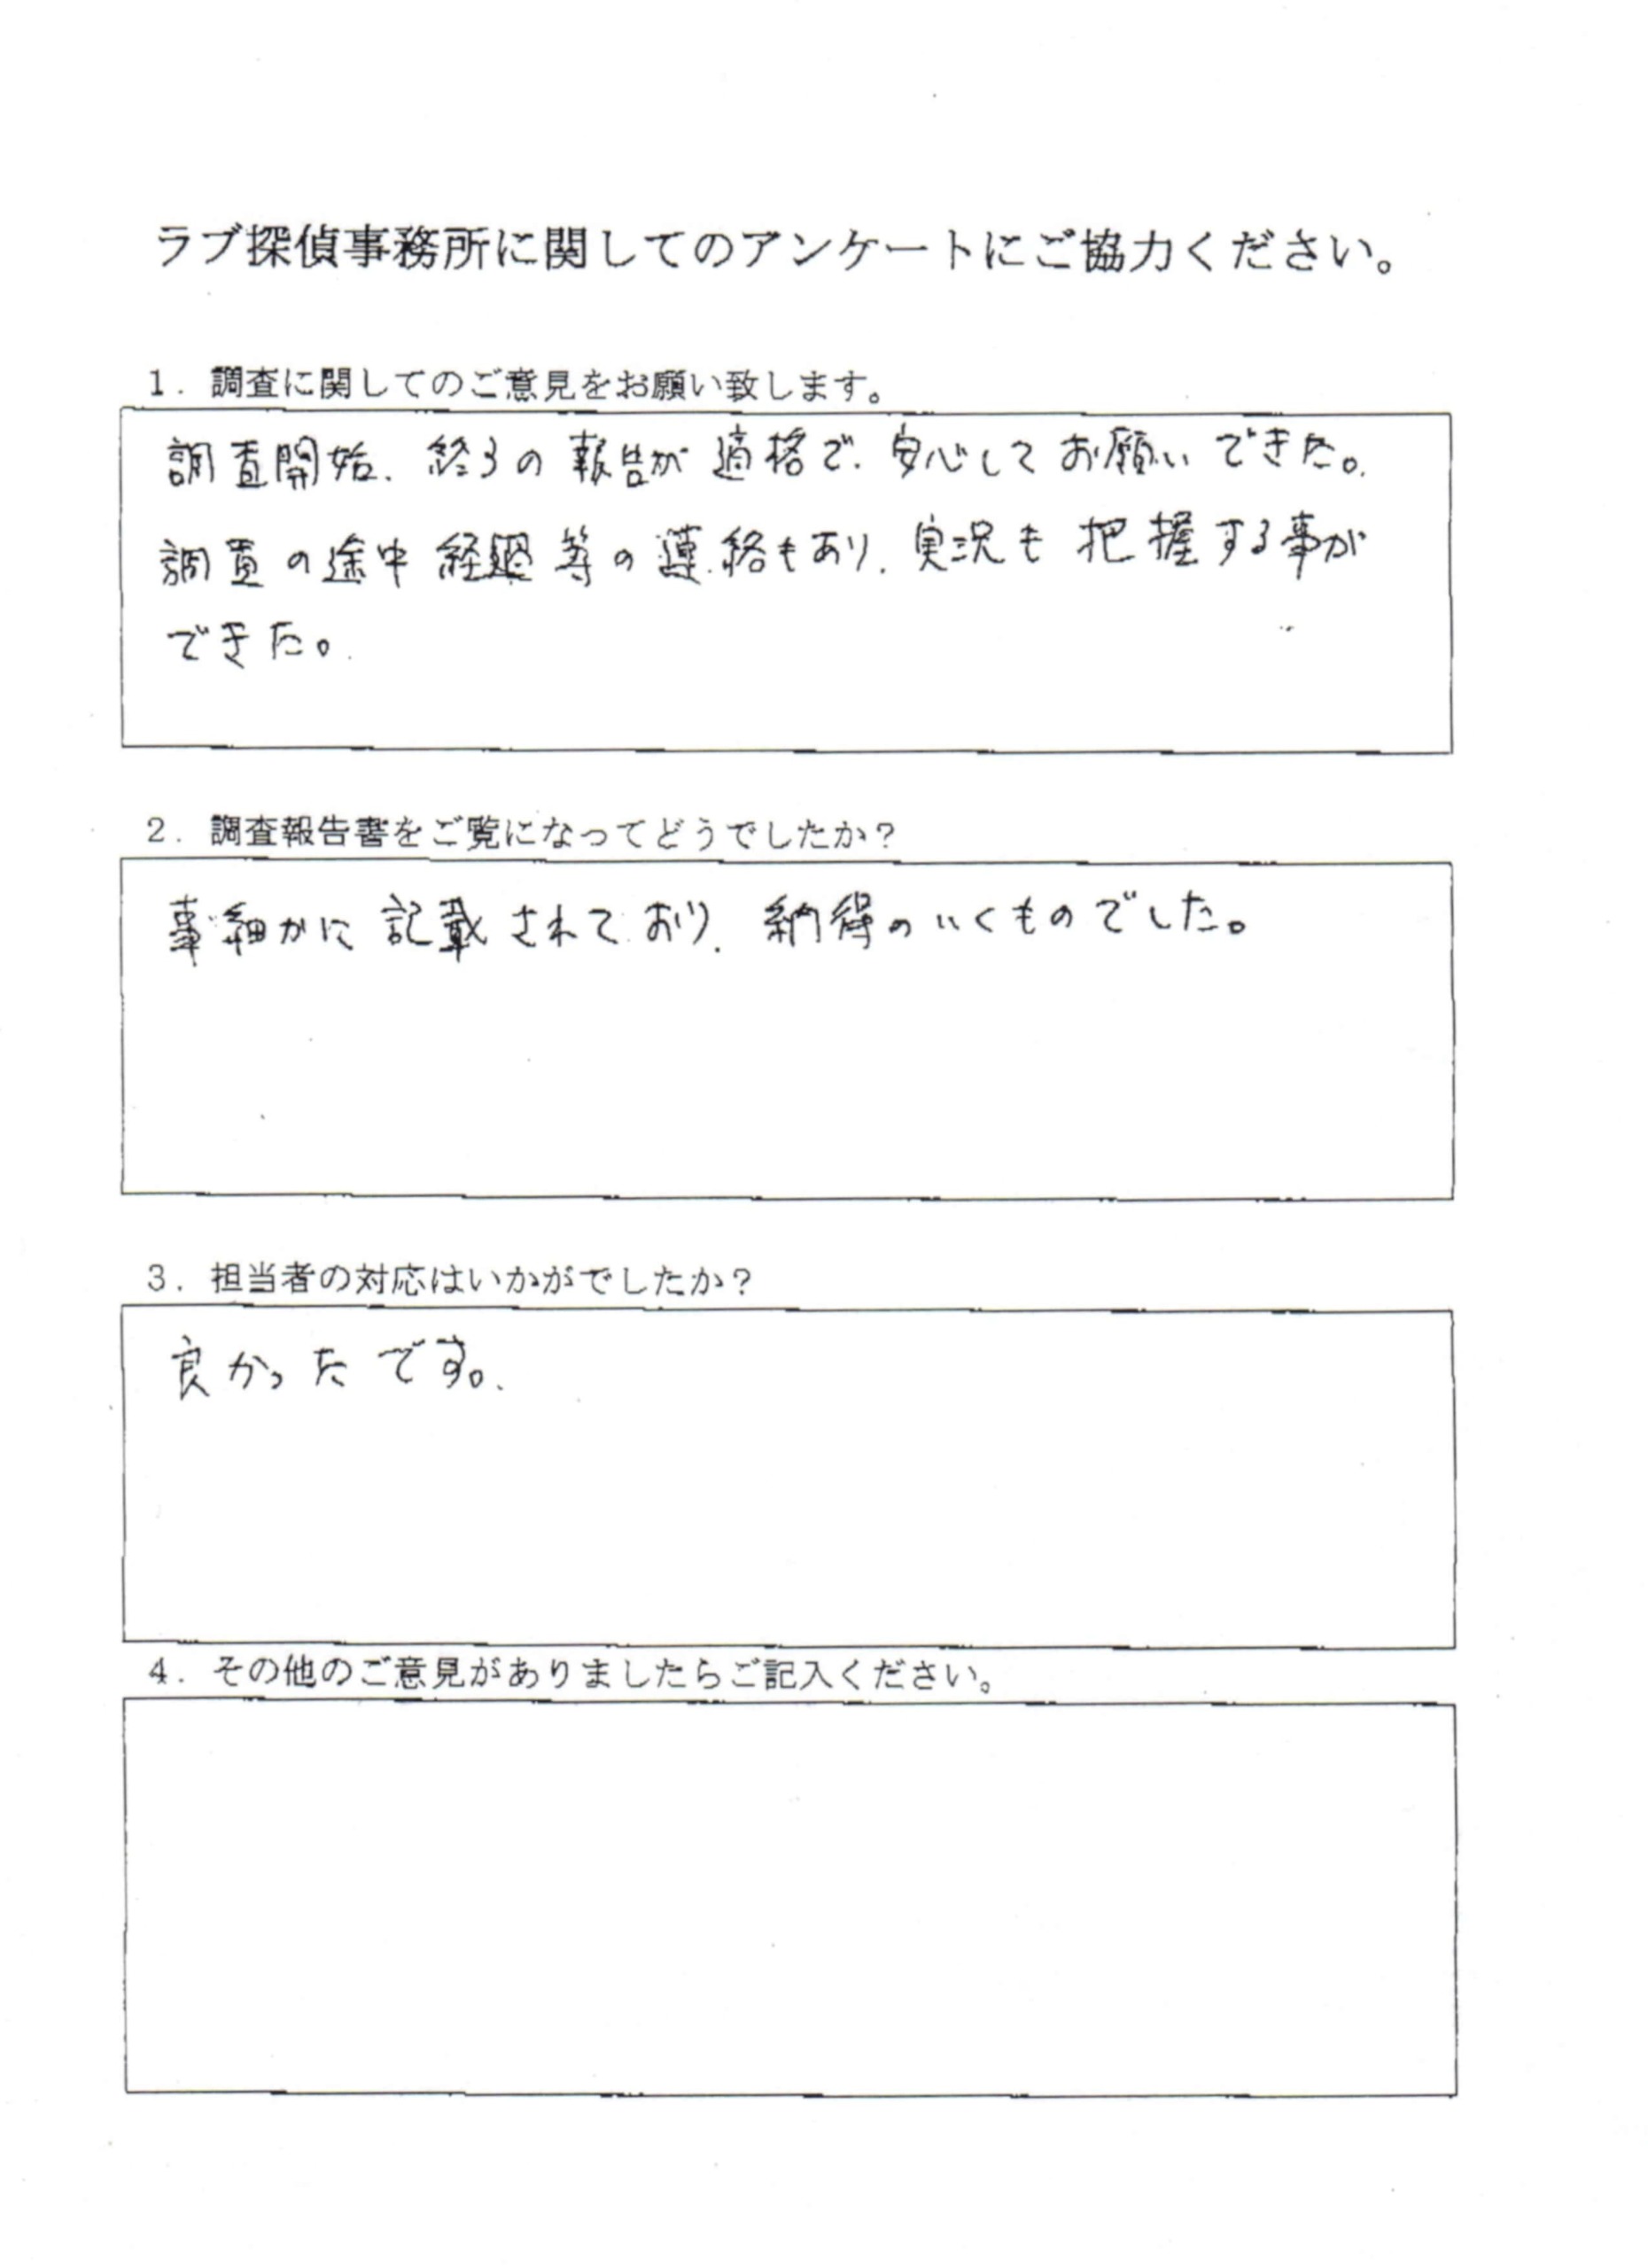 ラブ探偵事務所に関してのアンケートにご協力ください。
1. 調査に関してのご意見をお願い致します。
調査開始、終了の報告が適格で、安心してお願いできた。
調査の途中経過等の連絡もあり、実況も把握する事が
できた。
2. 調査報告書をご覧になってどうでしたか？
事細かに記載されており、納得のいくものでした。
3. 担当者の対応はいかがでしたか？
良かったです。
4. その他のご意見がありましたらご記入ください。